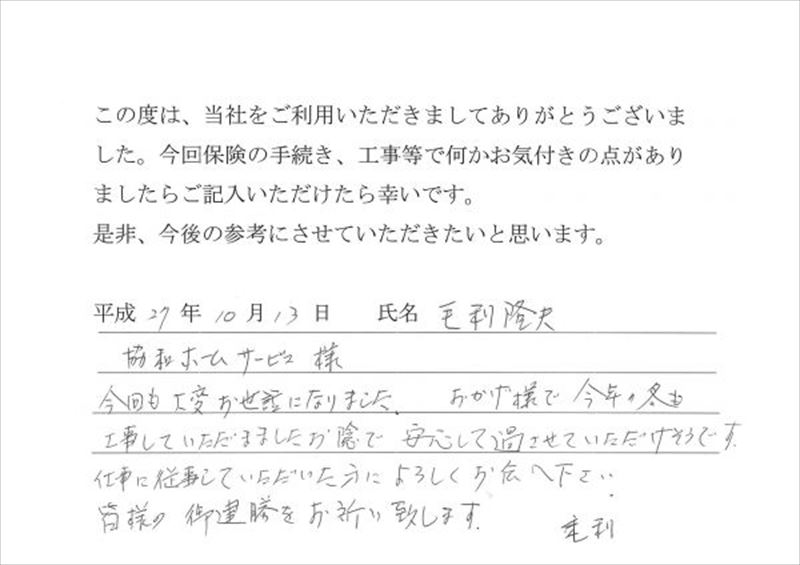 この度は、当社をご利用いただきましてありがとうございま
した。今回保険の手続き、工事等で何かお気付きの点があり
ましたらご記入いただけたら幸いです。
是非、今後の参考にさせていただきたいと思います。
平成 27 年 10 月 13 日 氏名 毛利隆夫
協和ホームサービス 様
今回も大変お世話になりました。 おかげ様で 今年の冬も
工事していただきましたお陰で 安心して過させていただけそうです。
仕事に従事していただいた方によろしくお伝へ下さい。
皆様の御健勝をお祈り致します。
毛利